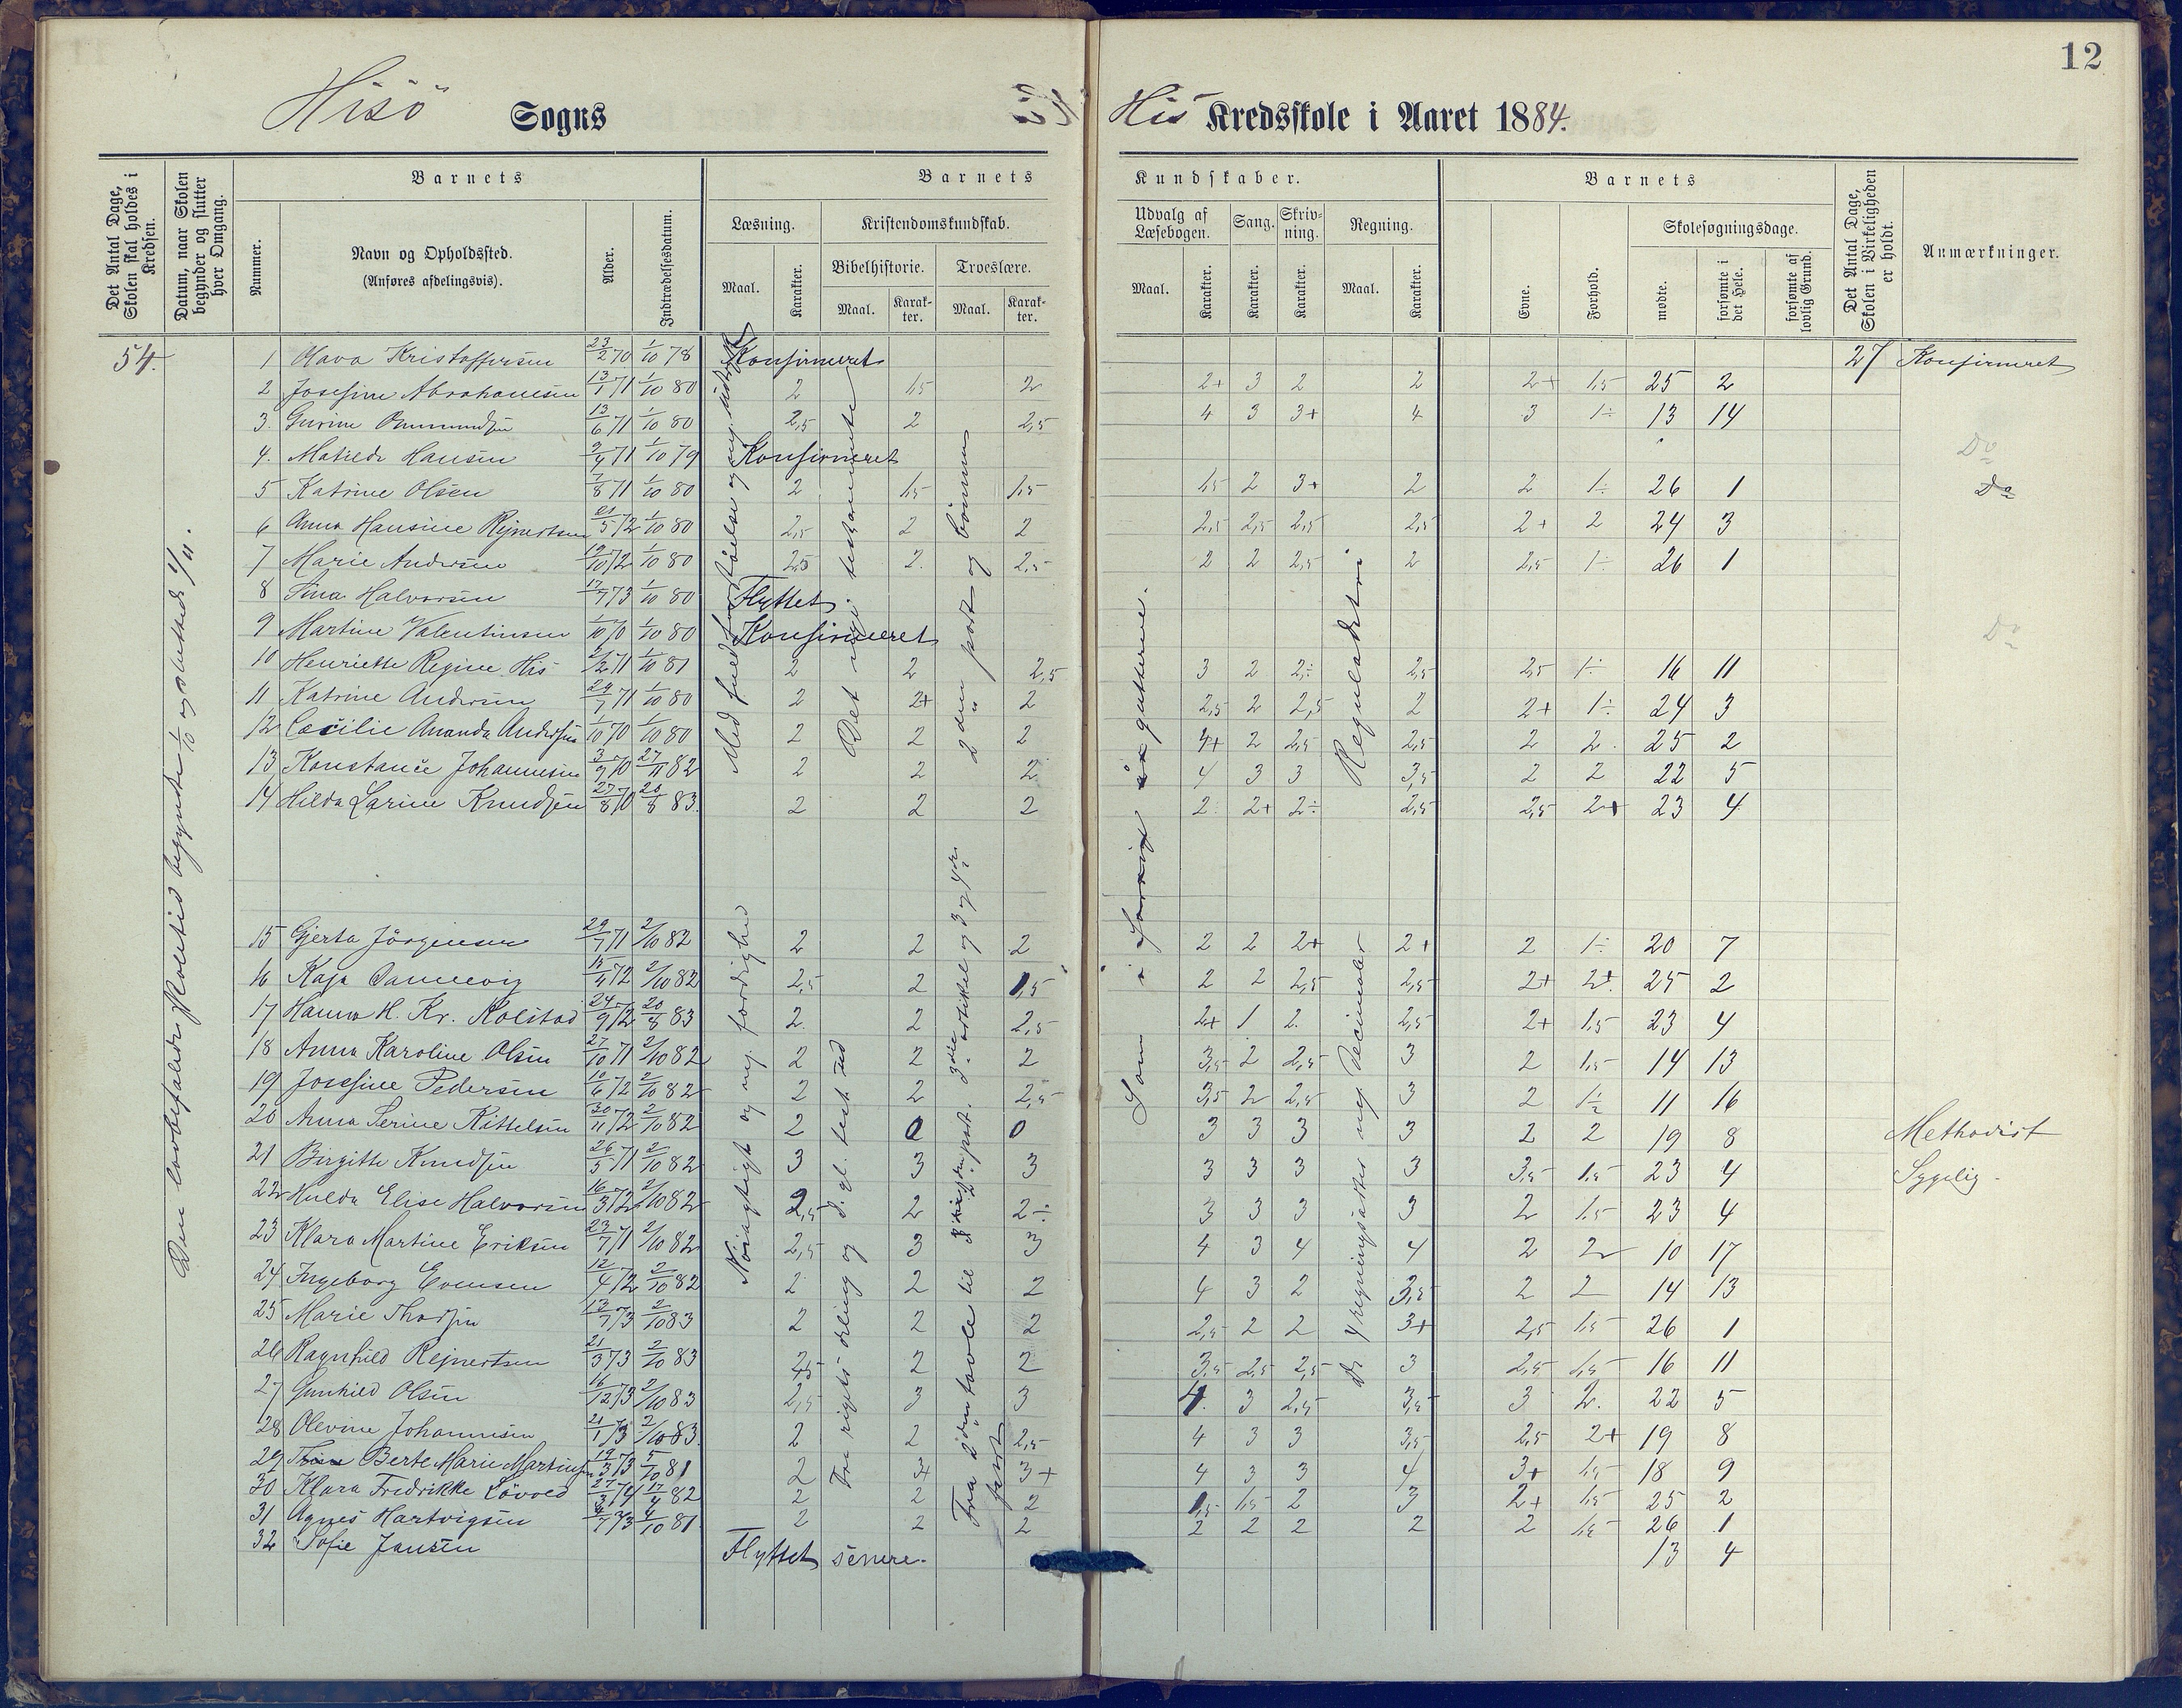 12
Hisö Sogns His Kredsskole i Aaret 1884.
Det Antal Dage, Skolen skal holdes i Kredsen.
Datum, naar Skolen begynder og slutter hver Omgang.
Barnets
Nummer.
Navn og Opholdssted.
(Anføres afdelingsvis).
Alder.
Indtrædelsesdatum.
Barnets Kundskaber.
Læsning.
Maal.
Karakter.
Kristendomskundskab.
Bibelhistorie.
Maal.
Karakter.
Troeslære.
Maal.
Karakter.
Udvalg af Læsebogen.
Maal.
Karakter.
Sang.
Karakter.
Skrivning.
Karakter.
Regning.
Maal.
Karakter.
Barnets
Evne.
Forhold.
Skolesøgningsdage.
mødte.
forsømte i det Hele.
forsømte af lovlig Grund.
Det Antal Dage, Skolen i Virkeligheden er holdt.
Anmærkninger.
54.
Den lovbefalede skoletid begyndte 1/10 og sluttede
1 Olava Kristoffersen 23/2 70 1/10 78 Konfirmeret 27 Konfirmeret
2 Josefine Abrahamsen 13/7 71 1/10 80 2 1,5 2 2+ 3 2 2 2+ 1,5 25 2
3. Gurine Ommundsen 13/6 71 1/10 80 2,5 2 2,5 4 3 3+ 4 3 1÷ 13 14
4. Matilde Hansen 9/4 71 1/10 79 Konfirmeret Do
5 Katrine Olsen 7/8 71 1/10 80 2 1,5 1,5 1,5 2 3+ 2 2 1÷ 26 1 Do
6 Anna Hansine Rejnertsen 21/5 72 1/10 80 2,5 2 2 2,5 2,5 2,5 2,5 2+ 2 24 3
7 Marie Andersen 19/10 72 1/10 80 2,5 2. 2,5 2 2 2,5 2 2,5 1÷ 26 1
8 Sina Halvorsen 17/7 73 1/10 80 Flyttet
9 Martine Valentinsen 1/10 70 1/10 80 Konfirmeret Do
10 Henriette Regine His 2/2 71 1/10 81 2 2 2,5 3 2 2÷ 2,5 2,5 1÷ 16 11
11 Katrine Andersen 29/7 71 1/10 80 2 2+ 2 2,5 2 2,5 2 2+ 1÷ 24 3
12 Cecilie Amanda Andersen 1/10 70 1/10 80 2 2 2 4+ 2 2,5 2,5 2 2. 25 2
13 Konstance Johannesen 3/9 70 27/11 82 2 2 2 4 3 3 3,5 2 2 22 5
14 Hilda Larine Knudsen 27/8 70 20/8 83. 2 2 2 2 2+ 2÷ 2,5 2,5 2+ 23 4
Det nye testamente
2den part og bönnen
Reguladetri
15 Gjerta Jörgensen 29/7 71 2/10 82 2 2 2 2 2 2+ 2+ 2 1÷ 20 7
16 Kaja Dannevig 15/4 72 2/10 82 2,5 2 1,5 2 2 2,5 2,5 2+ 2+ 25 2
17 Hanna H. Kr. Kolstad 24/9 72 20/8 83 2 2 2,5 2+ 1 2. 2,5 2+ 1,5 23 4
18 Anna Karoline Olsen 27/10 71 2/10 82 2 2 2 3,5 2 2,5 3 2 1,5 14 13
19 Josefine Pedersen 10/6 72 2/10 82 2 2 2,5 3,5 2 2,5 3 2 1÷ 11 16
20 Anna Serine Kittelsen 30/11 72 2/10 82 2 0 0 3 3 3 3 2 2 19 8 Methodist
21 Birgitte Knudsen 26/5 71 2/10 82 3 3 3 3 3 3 3 3,5 1,5 23 4 Sygelig.
22 Hulda Elise Halvorsen 16/3 72 2/10 82 2,5 2 2÷ 3 3 3 3 2 1,5 23 4
23 Klara Martine Eriksen 23/7 71 2/10 82 2,5 3 3 4 3 4 4 2 2 10 17
24 Ingeborg Evensen 12/4 72 2/10 82 2 2 2 4 3 2 3,5 2 2 14 13
25 Marie Thorsen 13/7 73 2/10 83 2 2 2 2,5 2 2 3+ 2,5 1,5 26 1
26 Ragnhild Rejnertsen 21/3 73 2/10 83 2,5 2 2 3,5 2,5 2,5 3 2,5 1,5 16 11
27 Gunhild Olsen 16/12 73 2/10 83 2,5 3 3 4. 3 2,5 3,5 3 2. 22 5
28 Olevine Johannesen 21/1 73 2/10 83. 2 2 2,5 4 3 3 3,5 2,5 2+ 19 8
29 Berte Marie Martinsen 19/3 73 5/10 81 2 3+ 3+ 4 3 3 4 3+ 1,5 18 9
30 Klara Fredrikke Lövold 27/3 74 17/4 82 2 2 2 1,5 1,5 2 3 2+ 1,5 25 2
31 Agnes Hartvigsen 4/7 73 4/10 81. 2 2 2 2 2 2 2 2 1,5 26 1
32 Sofie Jansen Flyttet senere. 13 4
Nöiagtigt og m. færdighed
Tre rigets deling og d. gl. test. ud
Fra 2den tavle til
3die artikel og 3 og 4de part
Som i gutterne.
De 4 regningsarter med decimaler